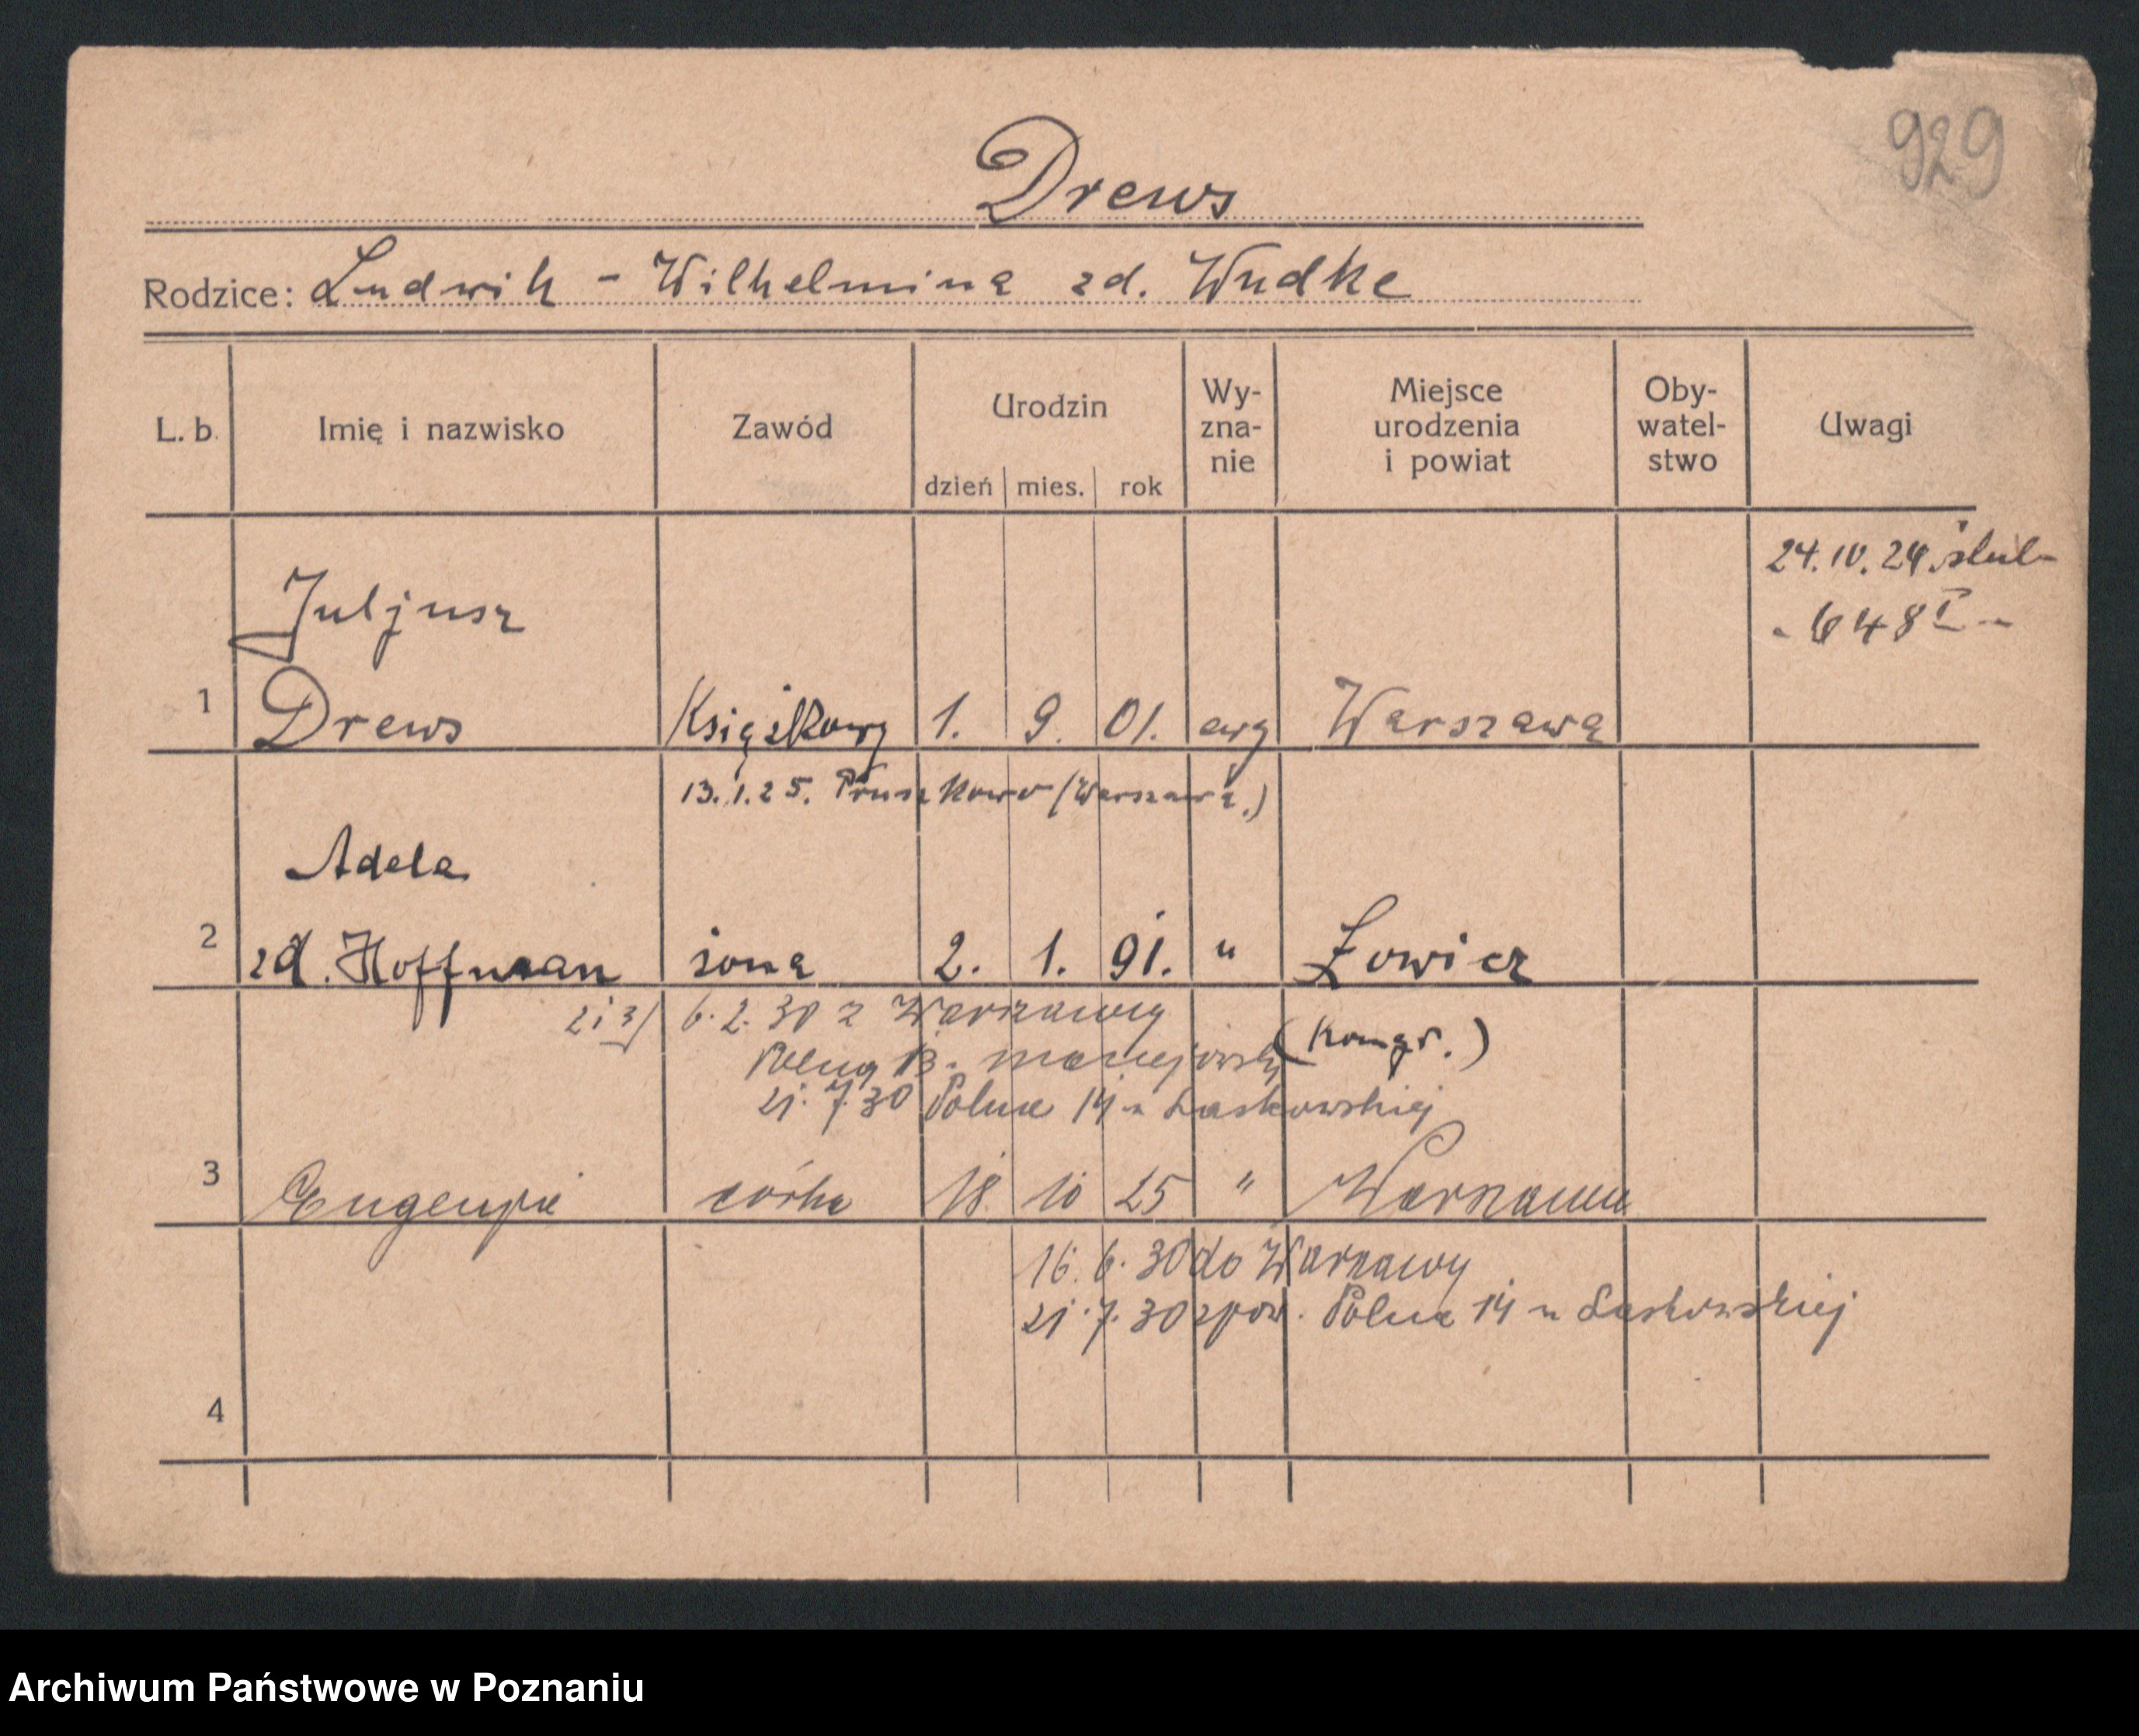 929
Drews
Rodzice: Ludwik - Wilhelmina zd. Wudke
L. b. Imię i nazwisko Zawód Urodzin dzień mies. rok Wy-zna-nie Miejsce urodzenia i powiat Oby-watel-stwo Uwagi
24. IV. 24. ślub
- 648 I -
Juljusz
1 Drews Książkowy 1. 9. 01. ewg Warszawa
13. 1. 25. Pruszkowo (Warszawa.)
Adela
2 zd. Hoffman żona 2. 1. 91. " Łowicz
2 i 3/ 6. 2. 30 z Warszawy
(Kongr.)
13.
21. 7. 30 Polna 14 u Laskowskiej
3 Eugenja córka 18. 10 25 " Warszawa
16. 6. 30 do Warszawy
21. 7. 30 zpow. Polna 14 u Laskowskiej
4
Archiwum Państwowe w Poznaniu